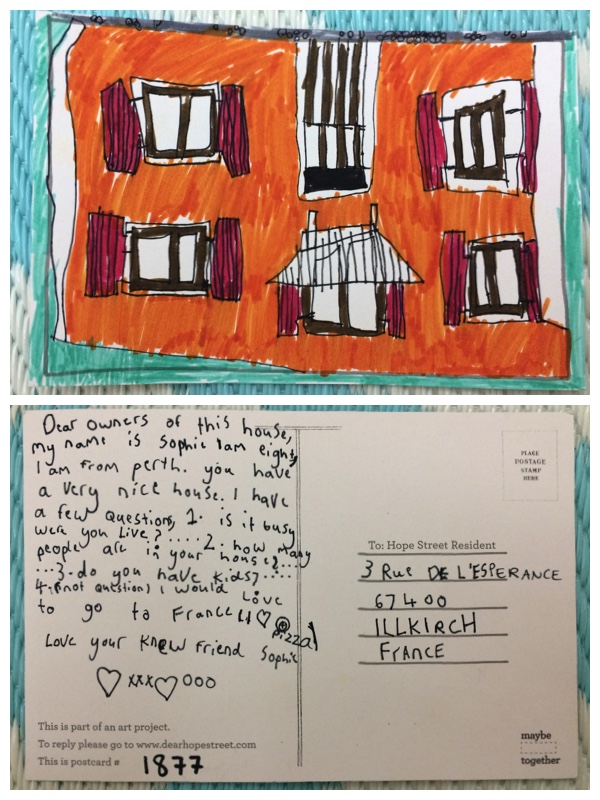 Dear owners of this house,
my name is Sophie I am eight,
I am from perth. you have
a very nice house. I have
a few Questions, 1. is it busy
were you Live?..... 2. how many
people are in your house?...
...3. do you have kids?....
4. (not question) I would Love
to go to France!!
pizza!
Love your knew friend Sophie
xxx ooo
This is part of an art project.
To reply please go to www.dearhopestreet.com
This is postcard # 1877
PLACE
POSTAGE
STAMP
HERE
To: Hope Street Resident
3 Rue DE L'ESPERANCE
67400
ILLKIRCH
FRANCE
maybe
together